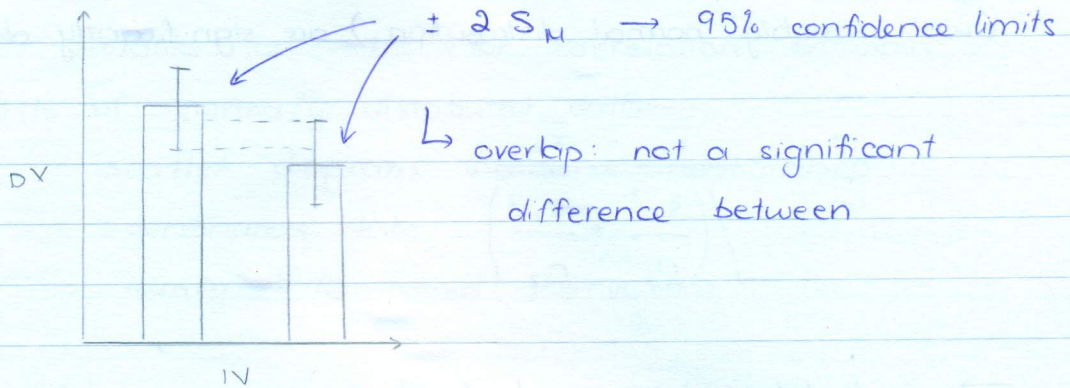 ± 2 S_M → 95% confidence limits
DV
↳ overlap: not a significant
difference between
IV